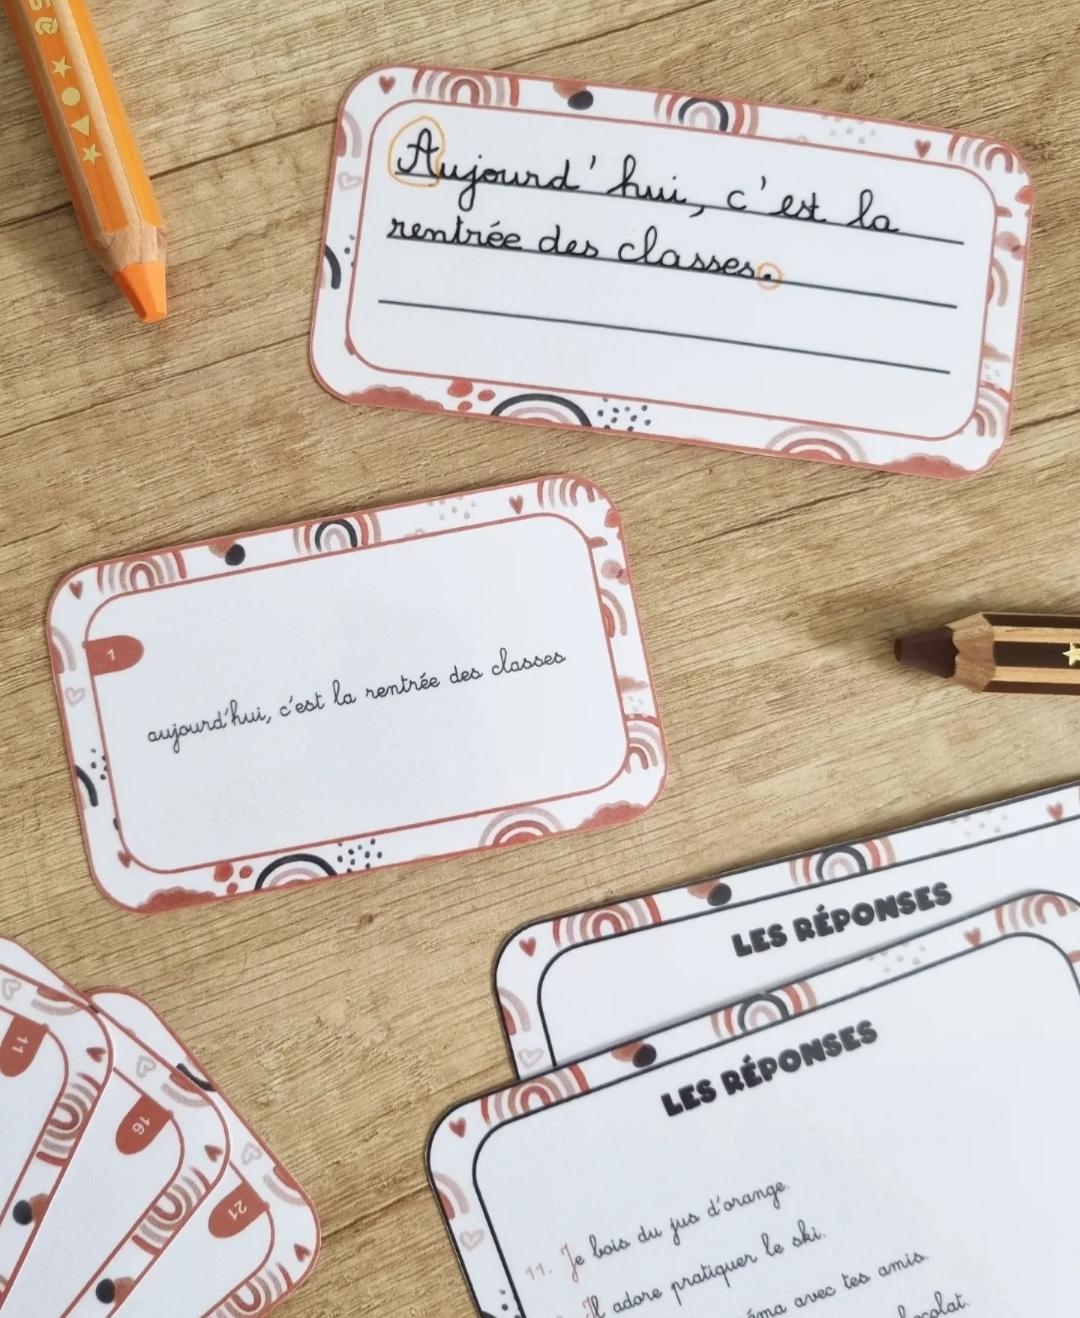 Aujourd'hui, c'est la
rentrée des classes.
1
aujourd'hui, c'est la rentrée des classes
LES RÉPONSES
LES RÉPONSES
11. Je bois du jus d'orange.
Il adore pratiquer le ski.
avec tes amis.
11
16
21